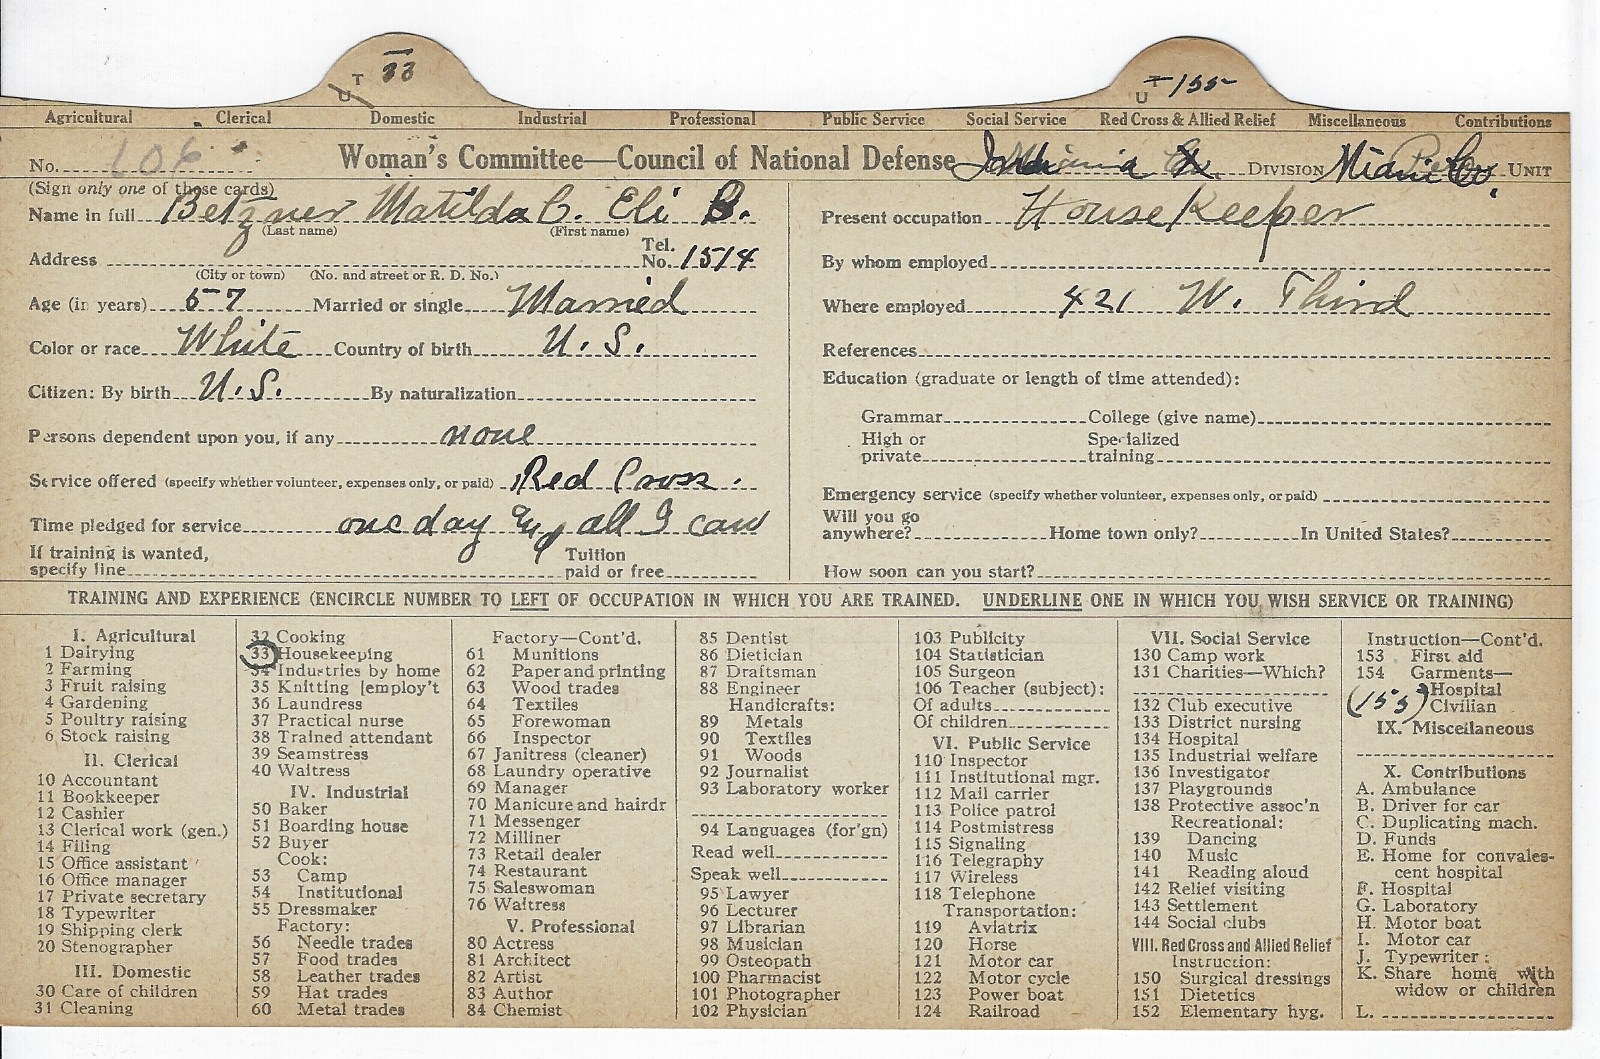 T 33
U
T 155
U
Agricultural Clerical Domestic Industrial Professional Public Service Social Service Red Cross & Allied Relief Miscellaneous Contributions
No. 106 Woman's Committee—Council of National Defense Indiana DIVISION Miami Co. UNIT
(Sign only one of those cards)
Name in full Betzner Matilda C. Eli B.
(Last name) (First name)
Address Tel. No. 1514
(City or town) (No. and street or R. D. No.)
Age (in years) 57 Married or single Married
Color or race White Country of birth U. S.
Citizen: By birth U.S. By naturalization
Persons dependent upon you, if any none
Service offered (specify whether volunteer, expenses only, or paid) Red Cross.
Time pledged for service one day and all I can
If training is wanted, specify line Tuition paid or free
Present occupation House Keeper
By whom employed
Where employed 421 W. Third
References
Education (graduate or length of time attended):
Grammar College (give name)
High or private Specialized training
Emergency service (specify whether volunteer, expenses only, or paid)
Will you go anywhere? Home town only? In United States?
How soon can you start?
TRAINING AND EXPERIENCE (ENCIRCLE NUMBER TO LEFT OF OCCUPATION IN WHICH YOU ARE TRAINED. UNDERLINE ONE IN WHICH YOU WISH SERVICE OR TRAINING)
I. Agricultural
1 Dairying
2 Farming
3 Fruit raising
4 Gardening
5 Poultry raising
6 Stock raising
II. Clerical
10 Accountant
11 Bookkeeper
12 Cashier
13 Clerical work (gen.)
14 Filing
15 Office assistant
16 Office manager
17 Private secretary
18 Typewriter
19 Shipping clerk
20 Stenographer
III. Domestic
30 Care of children
31 Cleaning
32 Cooking
33 Housekeeping
34 Industries by home
35 Knitting [employ't
36 Laundress
37 Practical nurse
38 Trained attendant
39 Seamstress
40 Waitress
IV. Industrial
50 Baker
51 Boarding house
52 Buyer
Cook:
53 Camp
54 Institutional
55 Dressmaker
Factory:
56 Needle trades
57 Food trades
58 Leather trades
59 Hat trades
60 Metal trades
Factory—Cont'd.
61 Munitions
62 Paper and printing
63 Wood trades
64 Textiles
65 Forewoman
66 Inspector
67 Janitress (cleaner)
68 Laundry operative
69 Manager
70 Manicure and hairdr
71 Messenger
72 Milliner
73 Retail dealer
74 Restaurant
75 Saleswoman
76 Waitress
V. Professional
80 Actress
81 Architect
82 Artist
83 Author
84 Chemist
85 Dentist
86 Dietician
87 Draftsman
88 Engineer
Handicrafts:
89 Metals
90 Textiles
91 Woods
92 Journalist
93 Laboratory worker
94 Languages (for'gn)
Read well
Speak well
95 Lawyer
96 Lecturer
97 Librarian
98 Musician
99 Osteopath
100 Pharmacist
101 Photographer
102 Physician
103 Publicity
104 Statistician
105 Surgeon
106 Teacher (subject):
Of adults
Of children
VI. Public Service
110 Inspector
111 Institutional mgr.
112 Mail carrier
113 Police patrol
114 Postmistress
115 Signaling
116 Telegraphy
117 Wireless
118 Telephone
Transportation:
119 Aviatrix
120 Horse
121 Motor car
122 Motor cycle
123 Power boat
124 Railroad
VII. Social Service
130 Camp work
131 Charities—Which?
132 Club executive
133 District nursing
134 Hospital
135 Industrial welfare
136 Investigator
137 Playgrounds
138 Protective assoc'n
Recreational:
139 Dancing
140 Music
141 Reading aloud
142 Relief visiting
143 Settlement
144 Social clubs
VIII. Red Cross and Allied Relief
Instruction:
150 Surgical dressings
151 Dietetics
152 Elementary hyg.
Instruction—Cont'd.
153 First aid
154 Garments—
Hospital
(155) Civilian
IX. Miscellaneous
X. Contributions
A. Ambulance
B. Driver for car
C. Duplicating mach.
D. Funds
E. Home for convales-
cent hospital
F. Hospital
G. Laboratory
H. Motor boat
I. Motor car
J. Typewriter:
K. Share home with
widow or children
L.